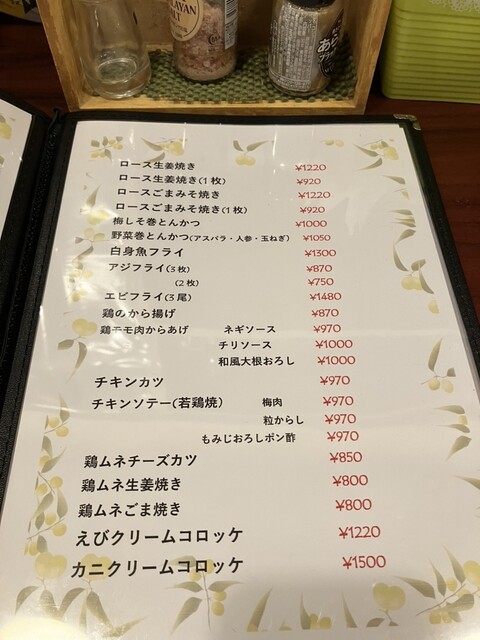 LAYAN
LT
あら
ブラ
ロース生姜焼き ¥1220
ロース生姜焼き(1枚) ¥920
ロースごまみそ焼き ¥1220
ロースごまみそ焼き(1枚) ¥920
梅しそ巻とんかつ ¥1000
野菜巻とんかつ(アスパラ・人参・玉ねぎ) ¥1050
白身魚フライ ¥1300
アジフライ(3枚) ¥870
(2枚) ¥750
エビフライ(3尾) ¥1480
鶏のから揚げ ¥870
鶏モモ肉からあげ ネギソース ¥970
チリソース ¥1000
和風大根おろし ¥1000
チキンカツ ¥970
チキンソテー(若鶏焼) 梅肉 ¥970
粒からし ¥970
もみじおろしポン酢 ¥970
鶏ムネチーズカツ ¥850
鶏ムネ生姜焼き ¥800
鶏ムネごま焼き ¥800
えびクリームコロッケ ¥1220
カニクリームコロッケ ¥1500